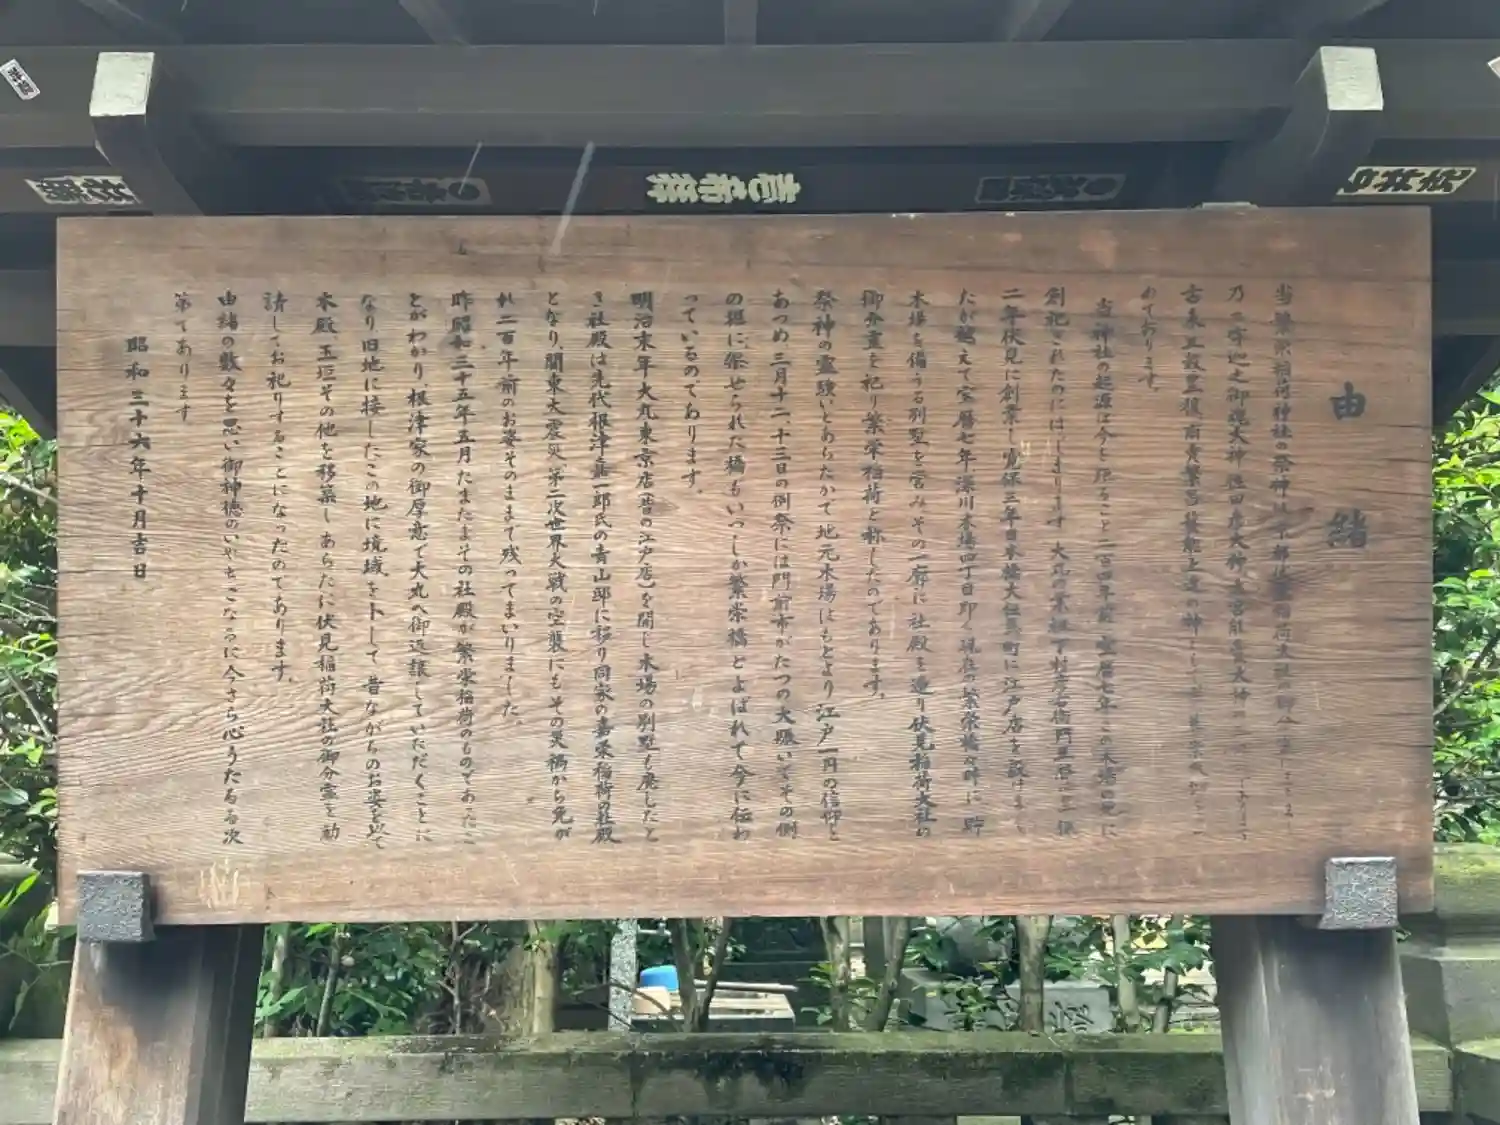 由緒
当繁栄稲荷神社の祭神は京都伏見稲荷大社の御分霊
古来五穀豊穣
めております。
当神社の起源は今を距ること二百四年前宝暦七年この木場の地に
創祀されたのにはじまります 大丸の業祖下村彦右衛門
二年伏見に創業し寛保三年日本橋大伝馬町に江戸店を設けまし
たが越えて宝暦七年深川木場四丁目即ち現在の繁栄橋の畔に貯
木場を備うる別墅を営みその一廓に社殿を造り伏見稲荷大社の
御分霊を祀り繁栄稲荷と称したのであります。
祭神の霊験いとあらたかで地元木場はもとより江戸一円の信仰を
あつめ三月十二、十三日の例祭には門前市がたつの大賑いでその側
の堀に架せられた橋もいつしか繁栄橋とよばれて今に伝わ
っているのであります。
明治末年大丸東京店(昔の江戸店)を閉じ木場の別墅も廃したと
き社殿は先代根津嘉一郎氏の青山邸に移り同家の嘉栄稲荷の社殿
となり、関東大震災、第二次世界大戦の空襲にもその災禍から免が
れ二百年前のお姿そのままで残ってまいりました。
昨昭和三十五年五月たまたまその社殿が繁栄稲荷のものであったこ
とがわかり、根津家の御厚意で大丸へ御返譲していただくことに
なり旧地に接したこの地に境域を卜して昔ながらのお姿を以て
本殿、玉垣その他を移築しあらたに伏見稲荷大社の御分霊を勧
請してお祀りすることになったのであります。
由緒の数々を思い御神徳のいやちこなるに今さら心うたるる次
第であります
昭和三十六年十月吉日